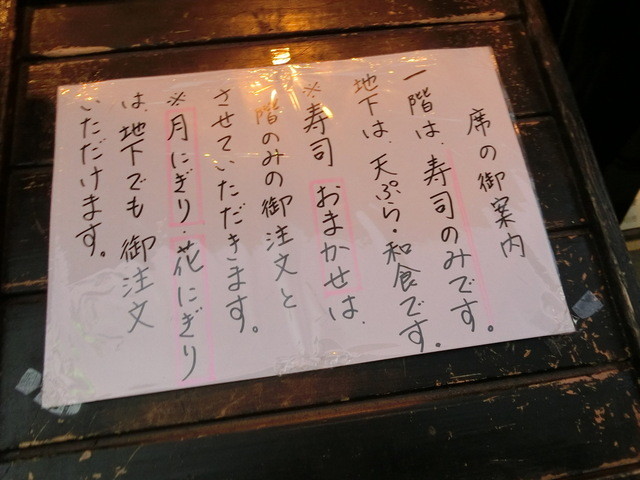 席の御案内
一階は、寿司のみです。
地下は、天ぷら・和食です。
※寿司 おまかせは、
一階のみの御注文と
させていただきます。
※月にぎり・花にぎり
は、地下でも御注文
いただけます。